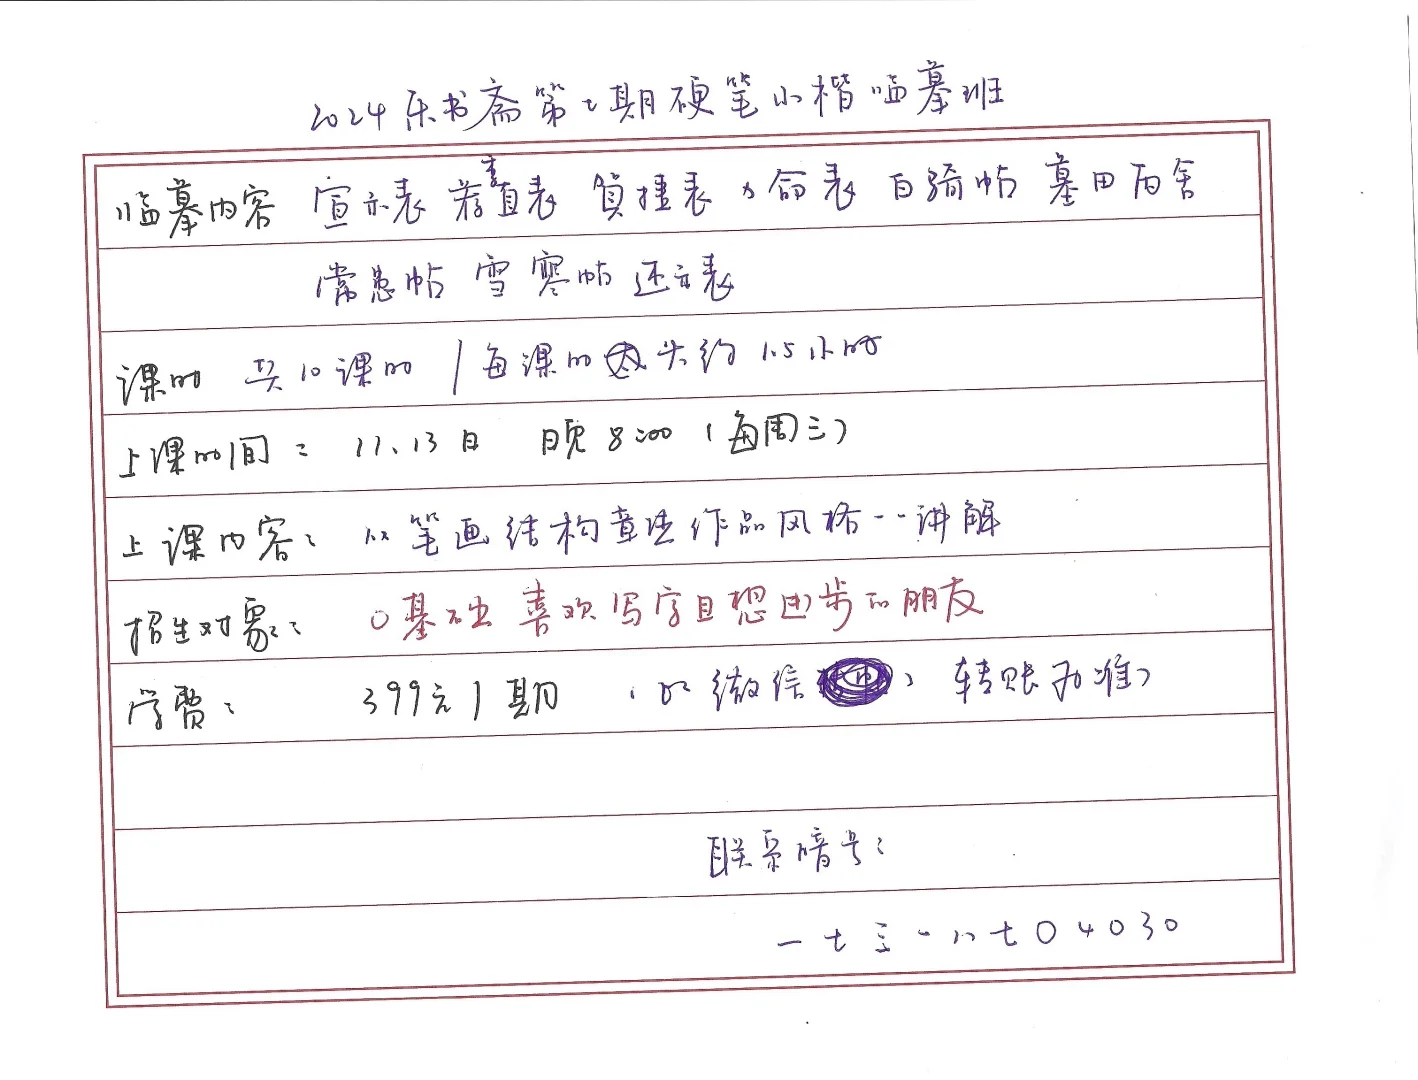 2024乐书斋第七期硬笔小楷临摹班
临摹内容 宣示表 荐季直表 贺捷表 力命表 白骑帖 墓田丙舍
常患帖 雪寒帖 还示表
课时 共10课时 / 每课时大约1.5小时
上课时间: 11.13日 晚8:00 (每周三)
上课内容: 从笔画结构章法作品风格一一讲解
招生对象: 0基础 喜欢写字且想进步的朋友
学费: 399元/期 (以微信 转账为准)
联系暗号:
一七三一八七04030